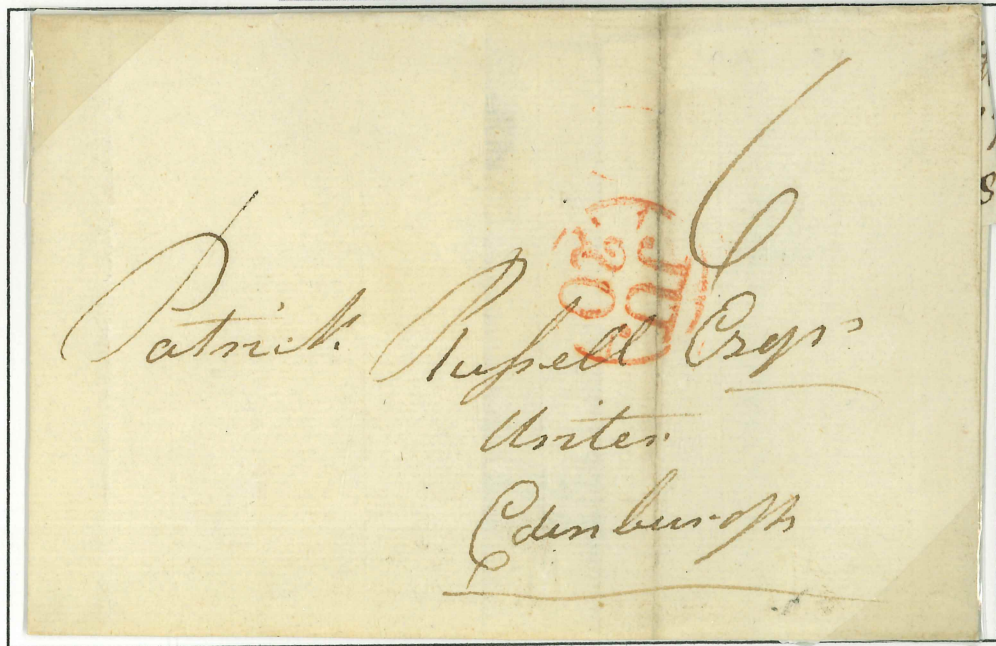 6
Patrick Russell Esqr
Writer
Edinburgh
JU
20